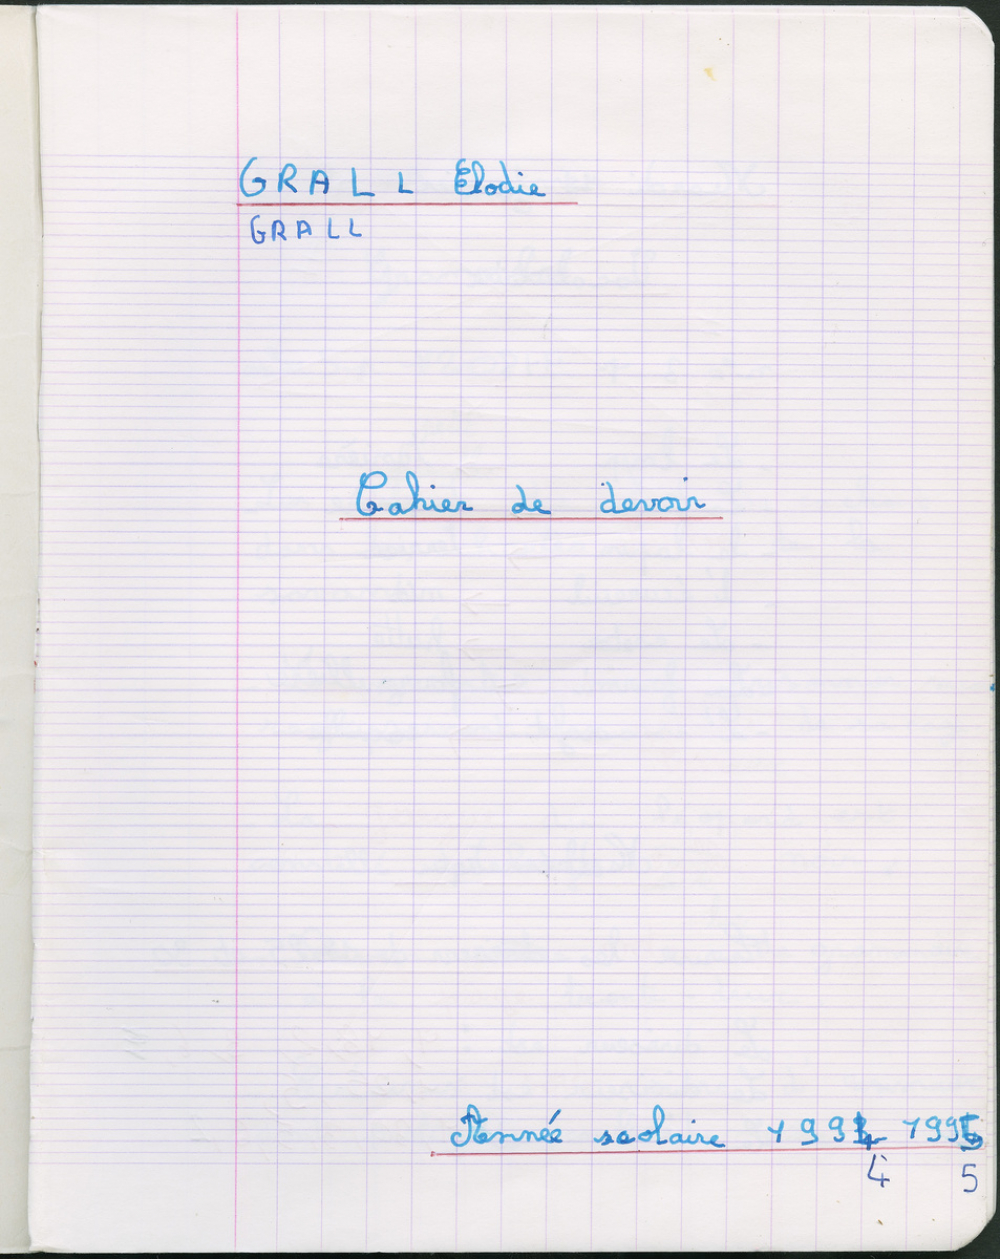 GRALL Elodie
GRALL
Cahier de devoir
Année scolaire 1994 1995
4 5